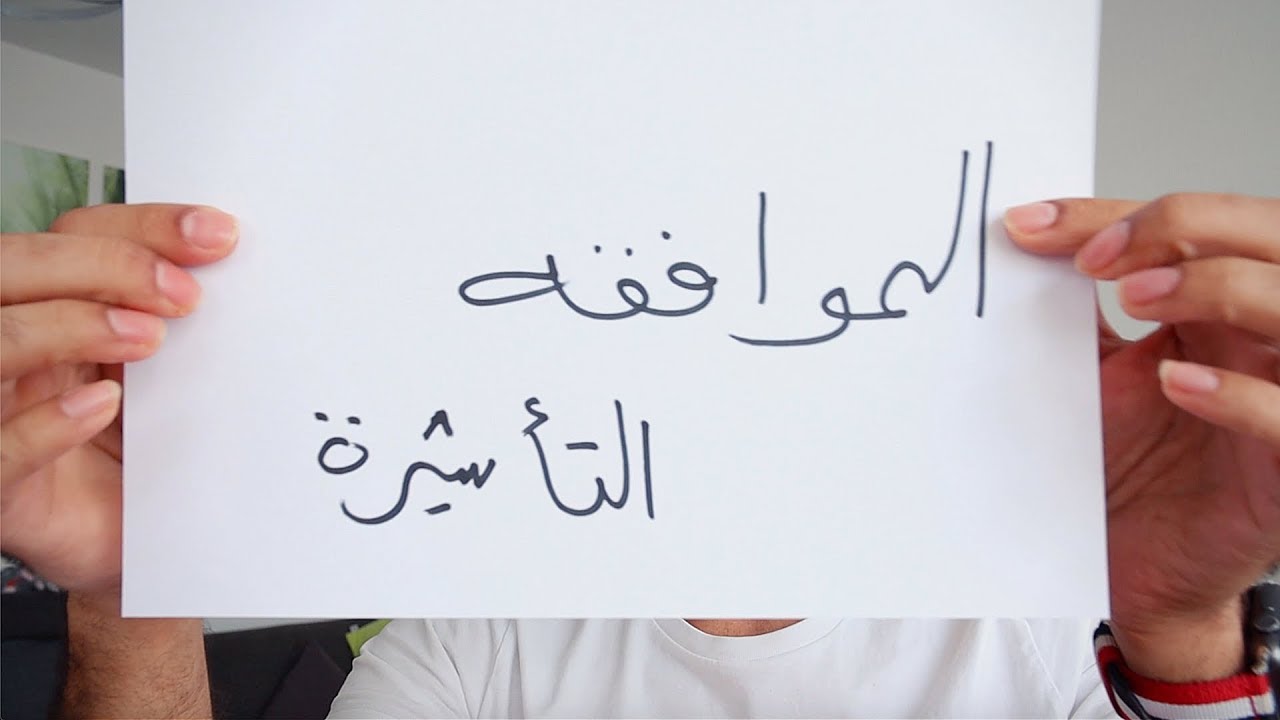 الموافقه
التأشيرة